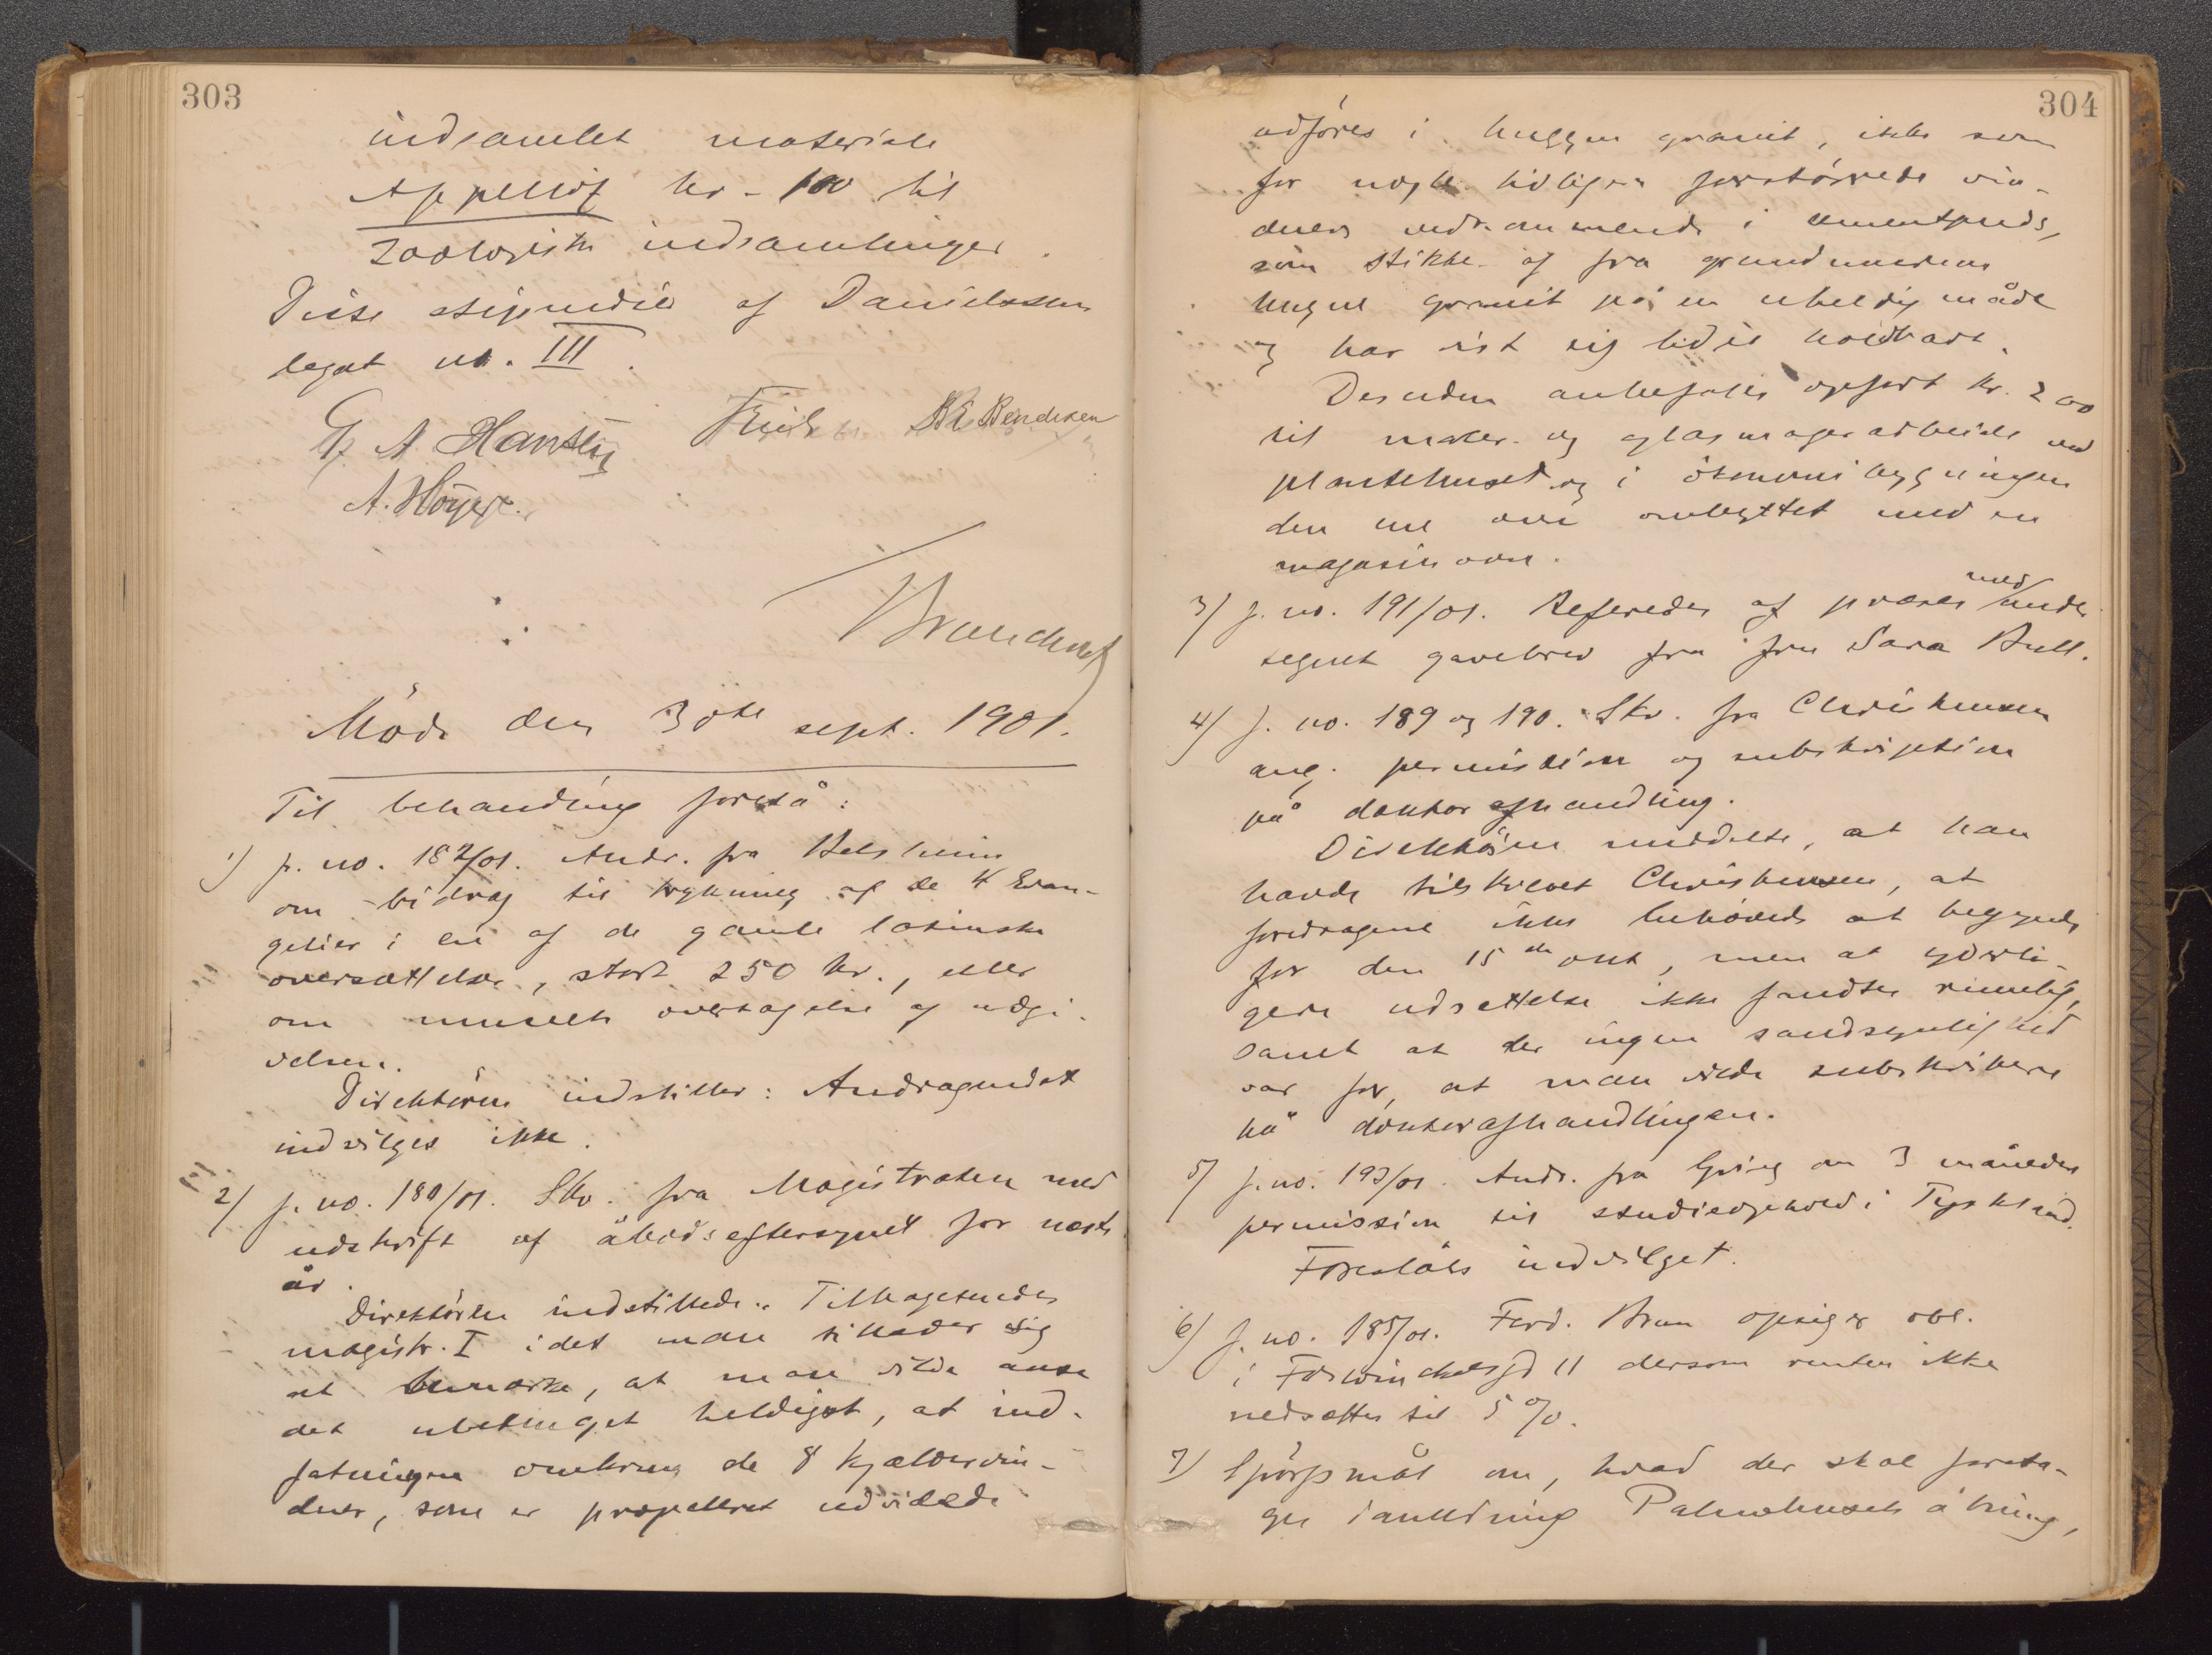 303
indsamlet materiale
Appellöf kr. 100 til
zoologiske indsamlinger.
Disse stipendier af Danielssens
legat no. III.
G. A. Hansen Friele B.E. Bendixen
A. Höyer.
Brunchorst
Möde den 30te sept. 1901.
Til behandling forelå:
1) j. no. 182/01. Andr. fra Belsheim
om bidrag til trykning af de 4 Evan-
gelier i en af de gamle latinske
oversættelser, stort 250 kr., eller
om museets overtagelse af udgi-
velsen.
Direktören indstiller: Andragendet
indvilges ikke.
2) j. no. 180/01. Skr. fra Magistraten med
udskrift af åbodseftersynet for næste
år.
Direktören indstillede: Tilbagesendes
magistr. I idet man tillader sig
at bemærke, at man vilde anse
det ubetinget heldigst, at ind-
fatningen omkring de 8 kjældervin-
duer, som er projekteret udvidede
304
udföres i huggen granit, ikke som
for nogle tidligere forstörrede vin-
duers vedkommende i cementpuds,
som stikker af fra grundmurens
hugne granit på en uheldig måde
og har vist sig lidet holdbart.
Desuden anbefales opfört kr. 200
til maler- og glasmagerarbeide ved
plantehuset og i ökonomibygningen
den ene ovn ombyttet med en
magasinovn.
3) j. no. 191/01. Refereredes af præses med under
tegnet gavebrev fra fru Sara Bull.
4) j. no. 189 og 190. Skr. fra Christensen
ang. permission og subskription
på doktorafhandling.
Direktören meddelte, at han
havde tilskrevet Christensen, at
foredragene ikke behövede at begynde
för den 15de okt, men at yderli-
gere udsettelse ikke fandtes rimelig,
samt at der ingen sandsynlighed
var for, at man vilde subskribere
på doktorafhandlingen.
5) j. no. 193/01. Andr. fra Grieg om 3 måneders
permission til studieophold i Tyskland.
Foreslåes indvilget.
6) j. no. 185/01. Ferd. Brun opsiger obl.
i 11 dersom renten ikke
nedsættes til 5 %.
7) Spörgsmål om, hvad der skal foreta-
ges i anledning Palmehusets åbning,